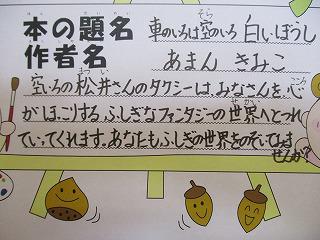 本の題名 車のいろは空のいろ 白いぼうし
作者名 あまん きみこ
空いろの松井さんのタクシーは、みなさんを心
がほっこりする、ふしぎなファンタジーの世界へとつれ
ていってくれます。あなたもふしぎの世界をのぞいてみま
せんか?